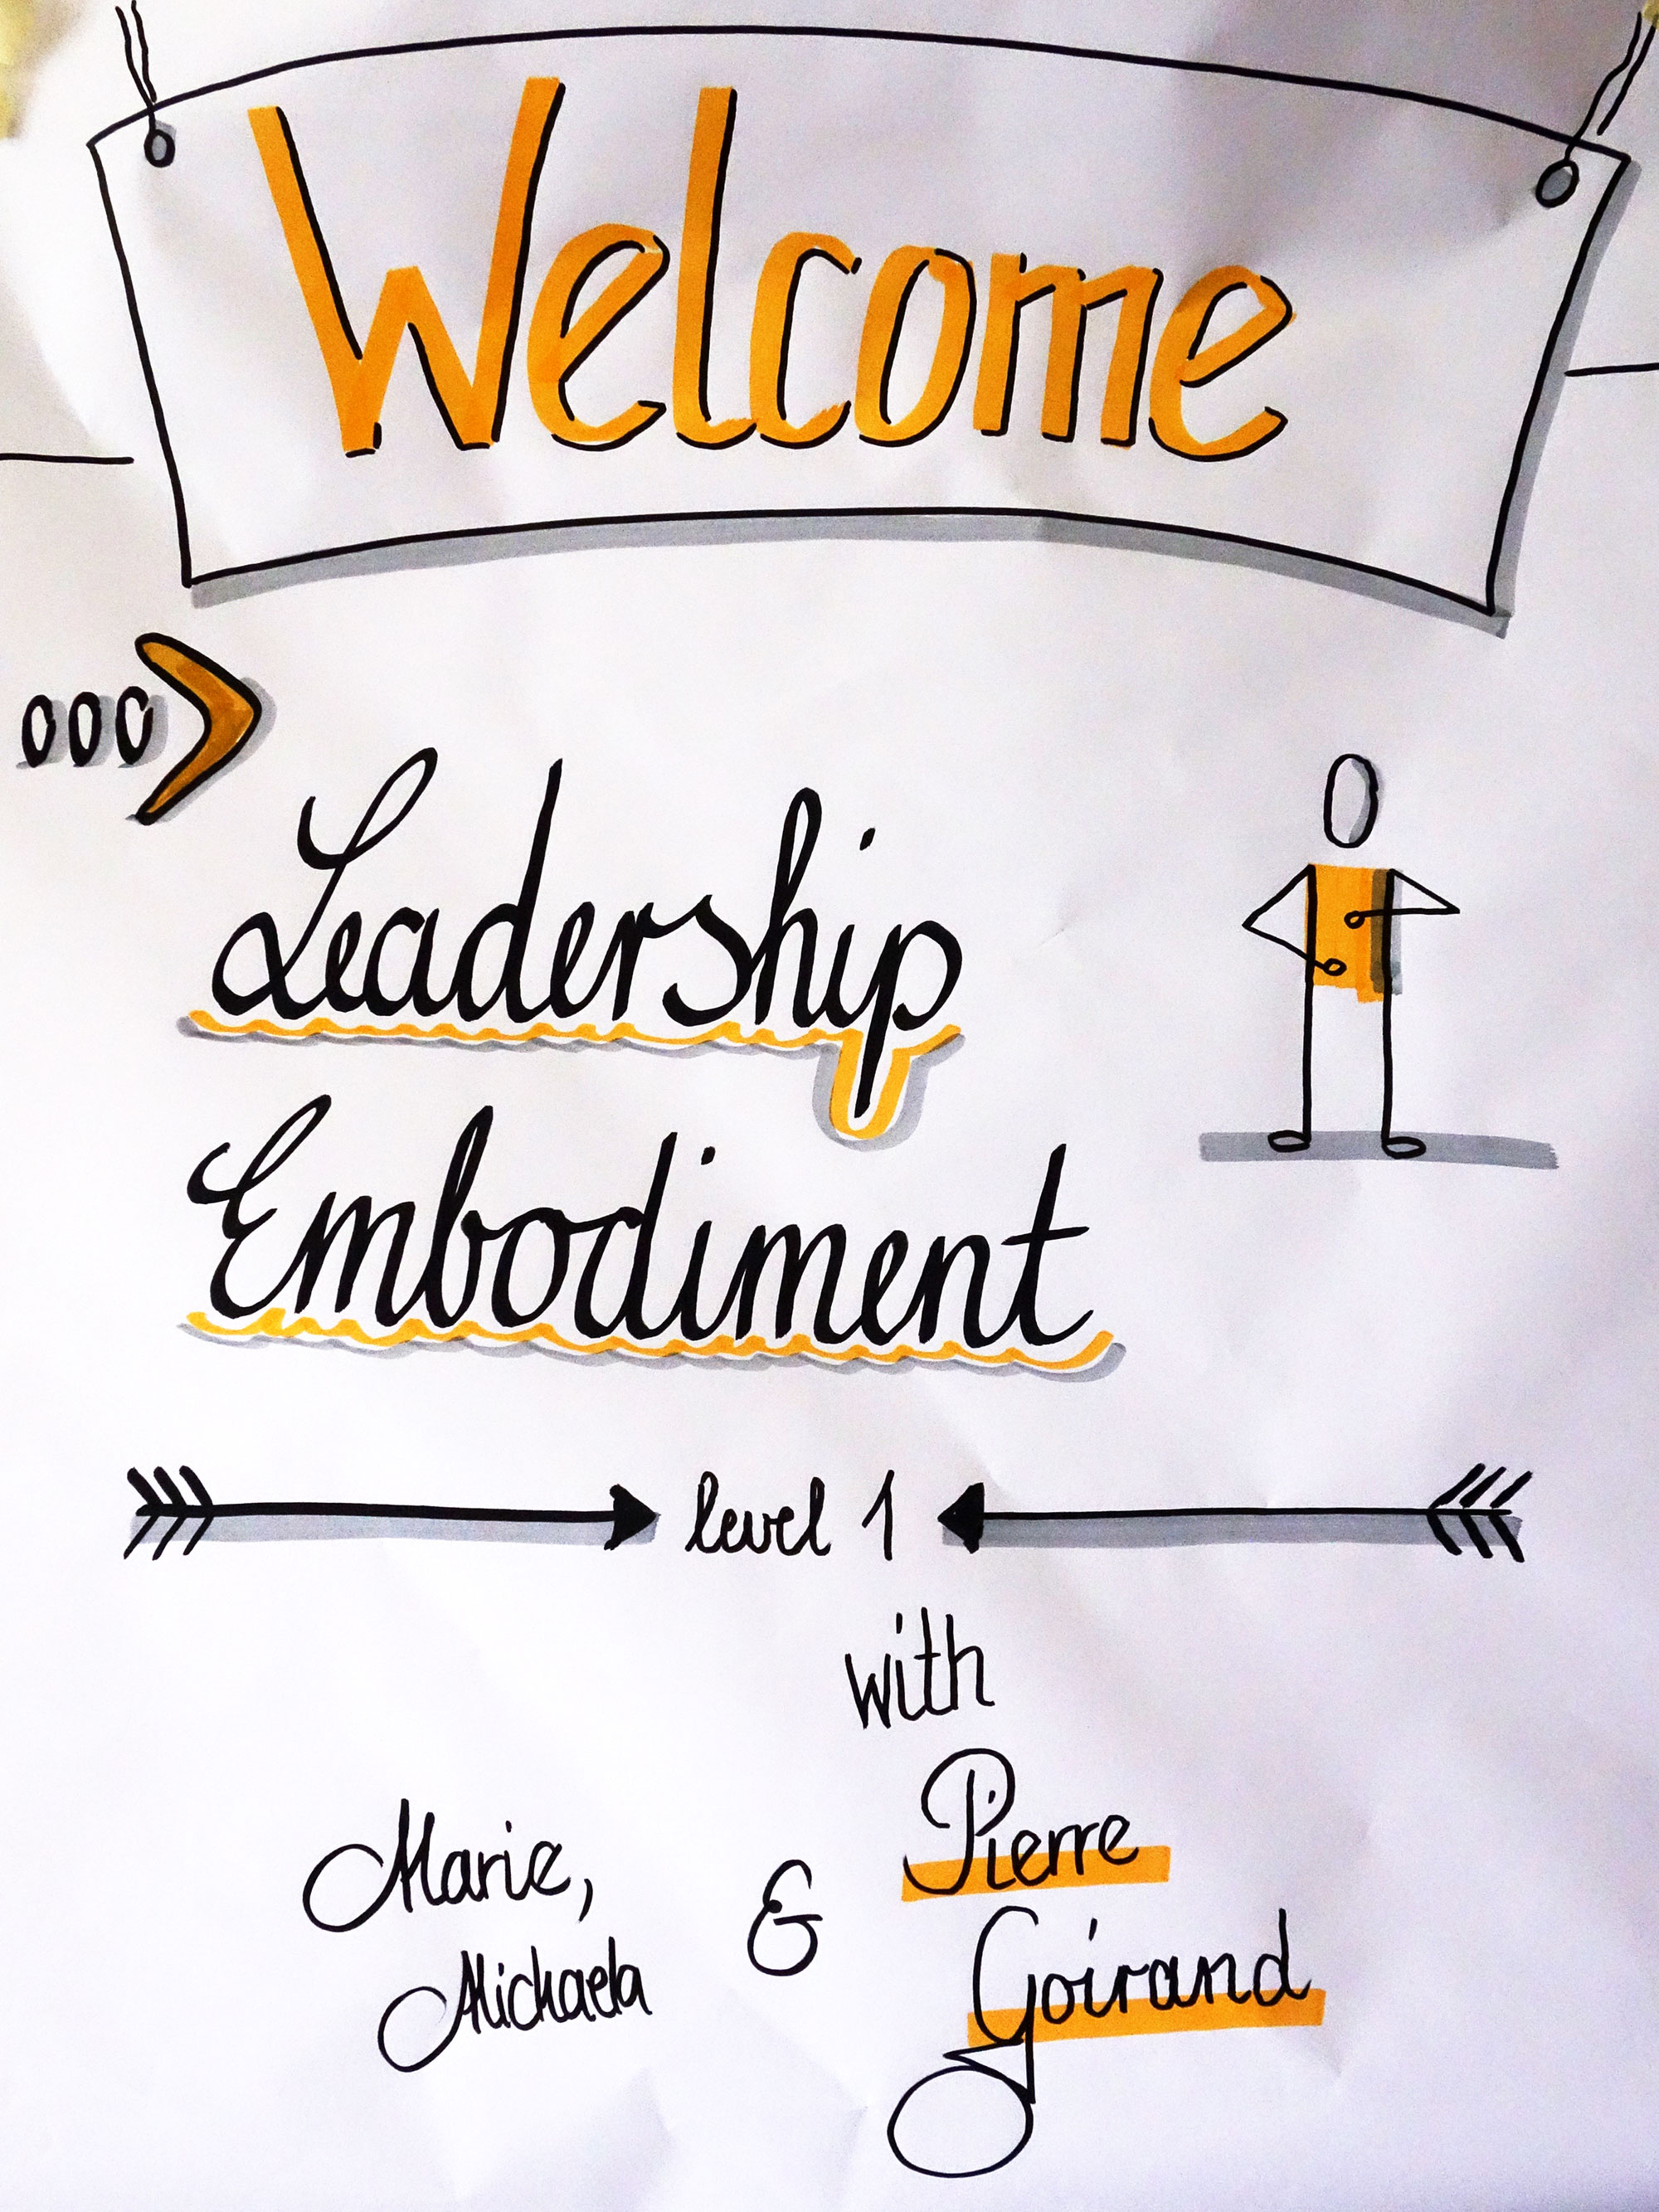 Welcome
Leadership
Embodiment
level 1
with
Marie,
Michaela
&
Pierre
Goirand